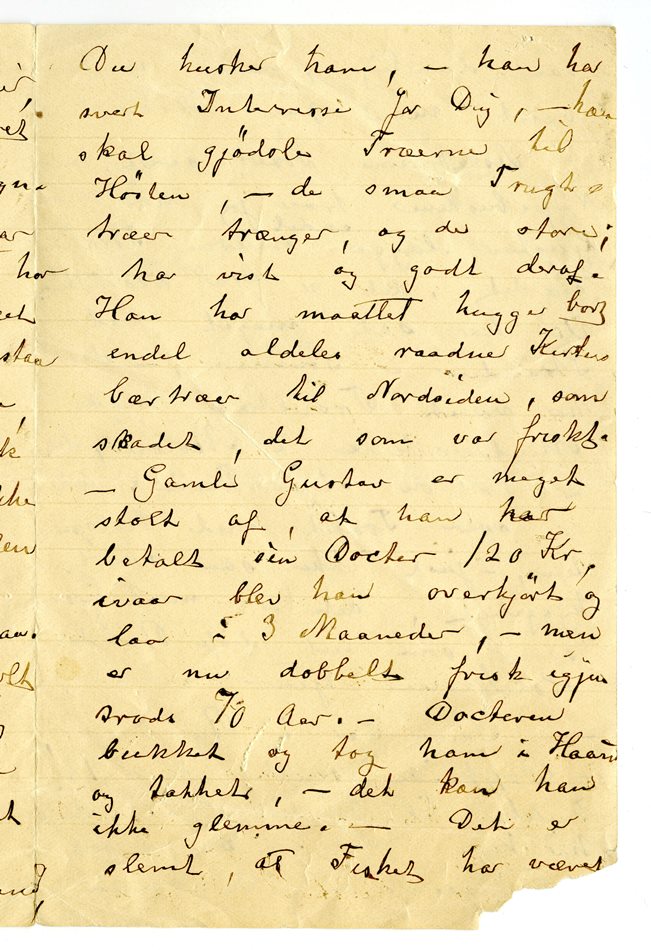 Du husker ham, — han har
svært Interesse for Dig, — han
skal gjødole Træerne til
Hösten, — de smaa Frugt-
træer trænger, og de store,
har vist og godt deraf.
Han har maattet hugge bort
endel aldeles raadne Kirse
bærtræer til Nordsiden, som
skadet, det som var friskt.
— Gamle Gustav er meget
stolt af, at han har
betalt sin Docter 120 Kr,
ivaar blev han overkjört og
laa i 3 Maaneder, — men
er nu dobbelt frisk igjen
trods 70 Aar. — Docteren
bukket og tog ham i Haand
og takket, — det kan han
ikke glemme. — Det er
slemt, at Fisket har været